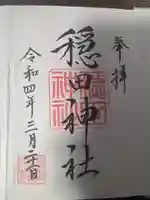 奉拝
穏田神社
令和四年三月二十一日